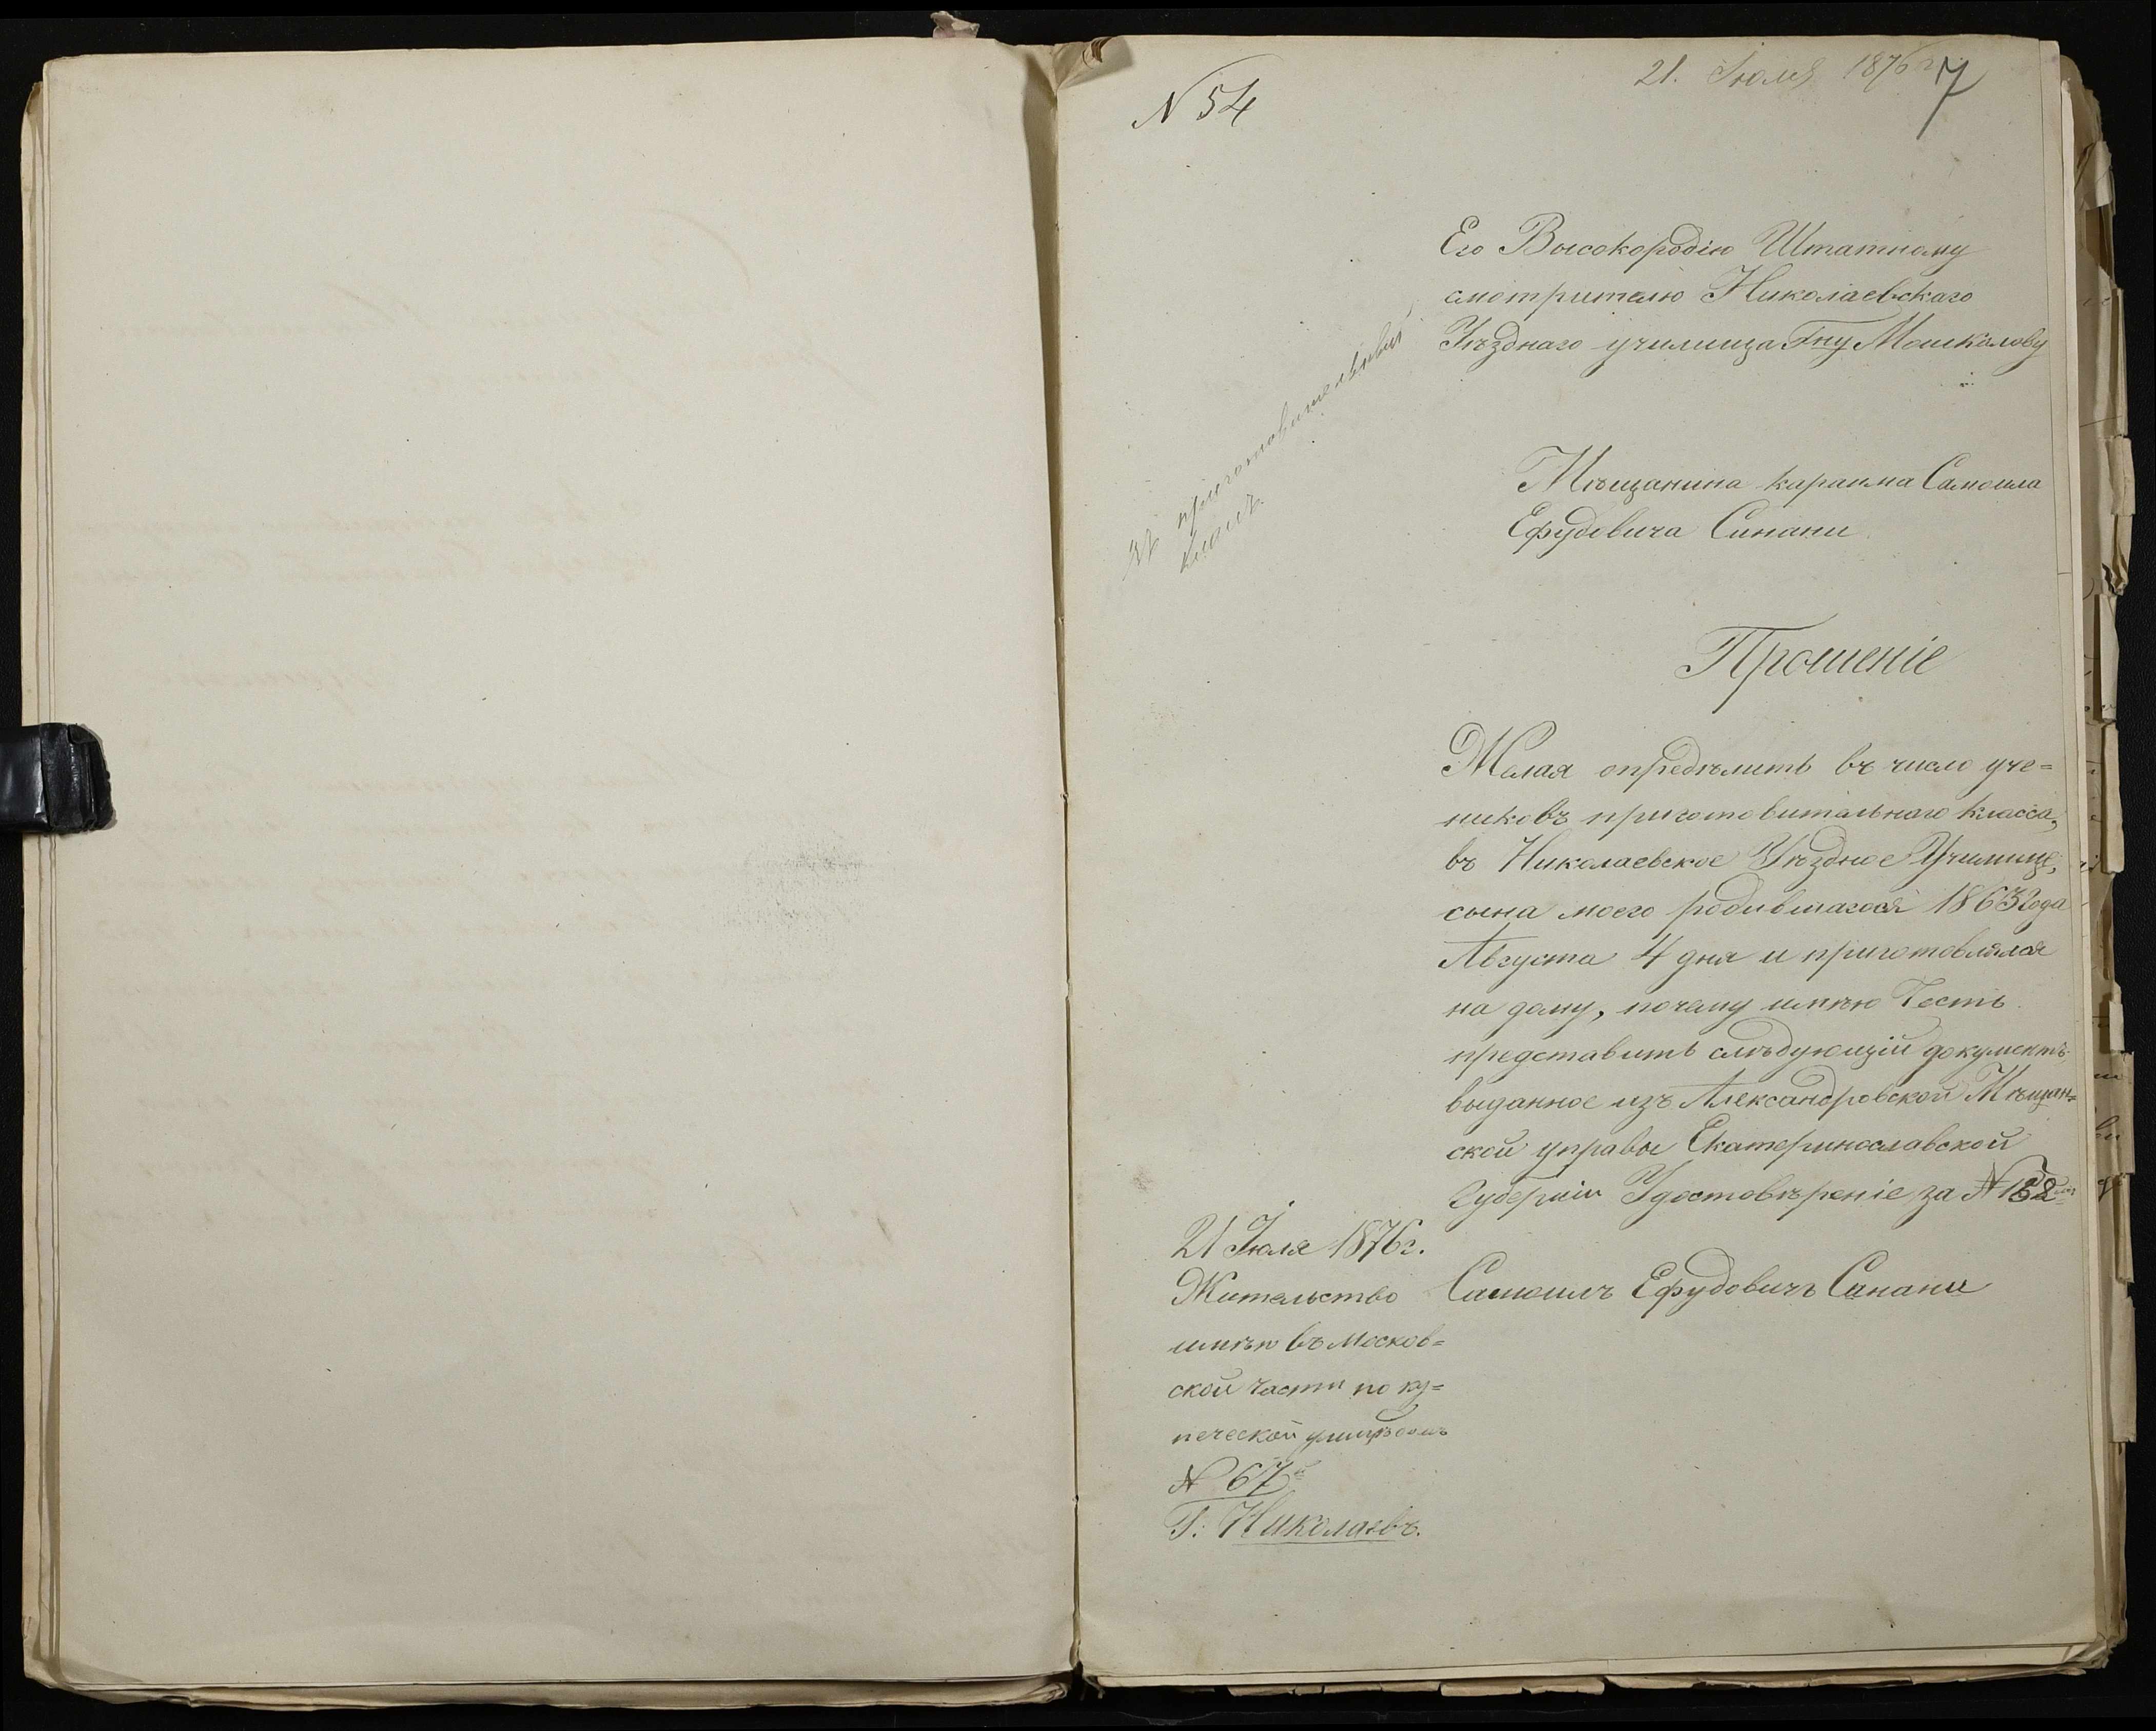 N 54
21. Июля 1876 г
7
Его Высокородію Штатному
смотрителю Николаевскаго
Уѣзднаго училища Гну Мошкалову
Въ приготовительный
классъ.
Мѣщанина караима Самоила
Ефудовича Синани
Прошеніе
Желая опредѣлить въ число уче=
никовъ приготовительнаго класса,
въ Николаевское Уѣздное Училище,
сына моего родившагося 1863 года
Августа 4 дня и приготовлялся
на дому, почему имѣю Честь
представить слѣдующій документъ
выданное изъ Александровской Мѣщан=
ской управы Екатеринославской
Губерніи Удостовѣреніе за №
21 Июля 1876 г.
Жительство
имѣю въ Москов=
ской части по ку=
печеской улицѣ домъ
№ 67й
Г: Николаевъ.
Самоилъ Ефудовичъ Синани